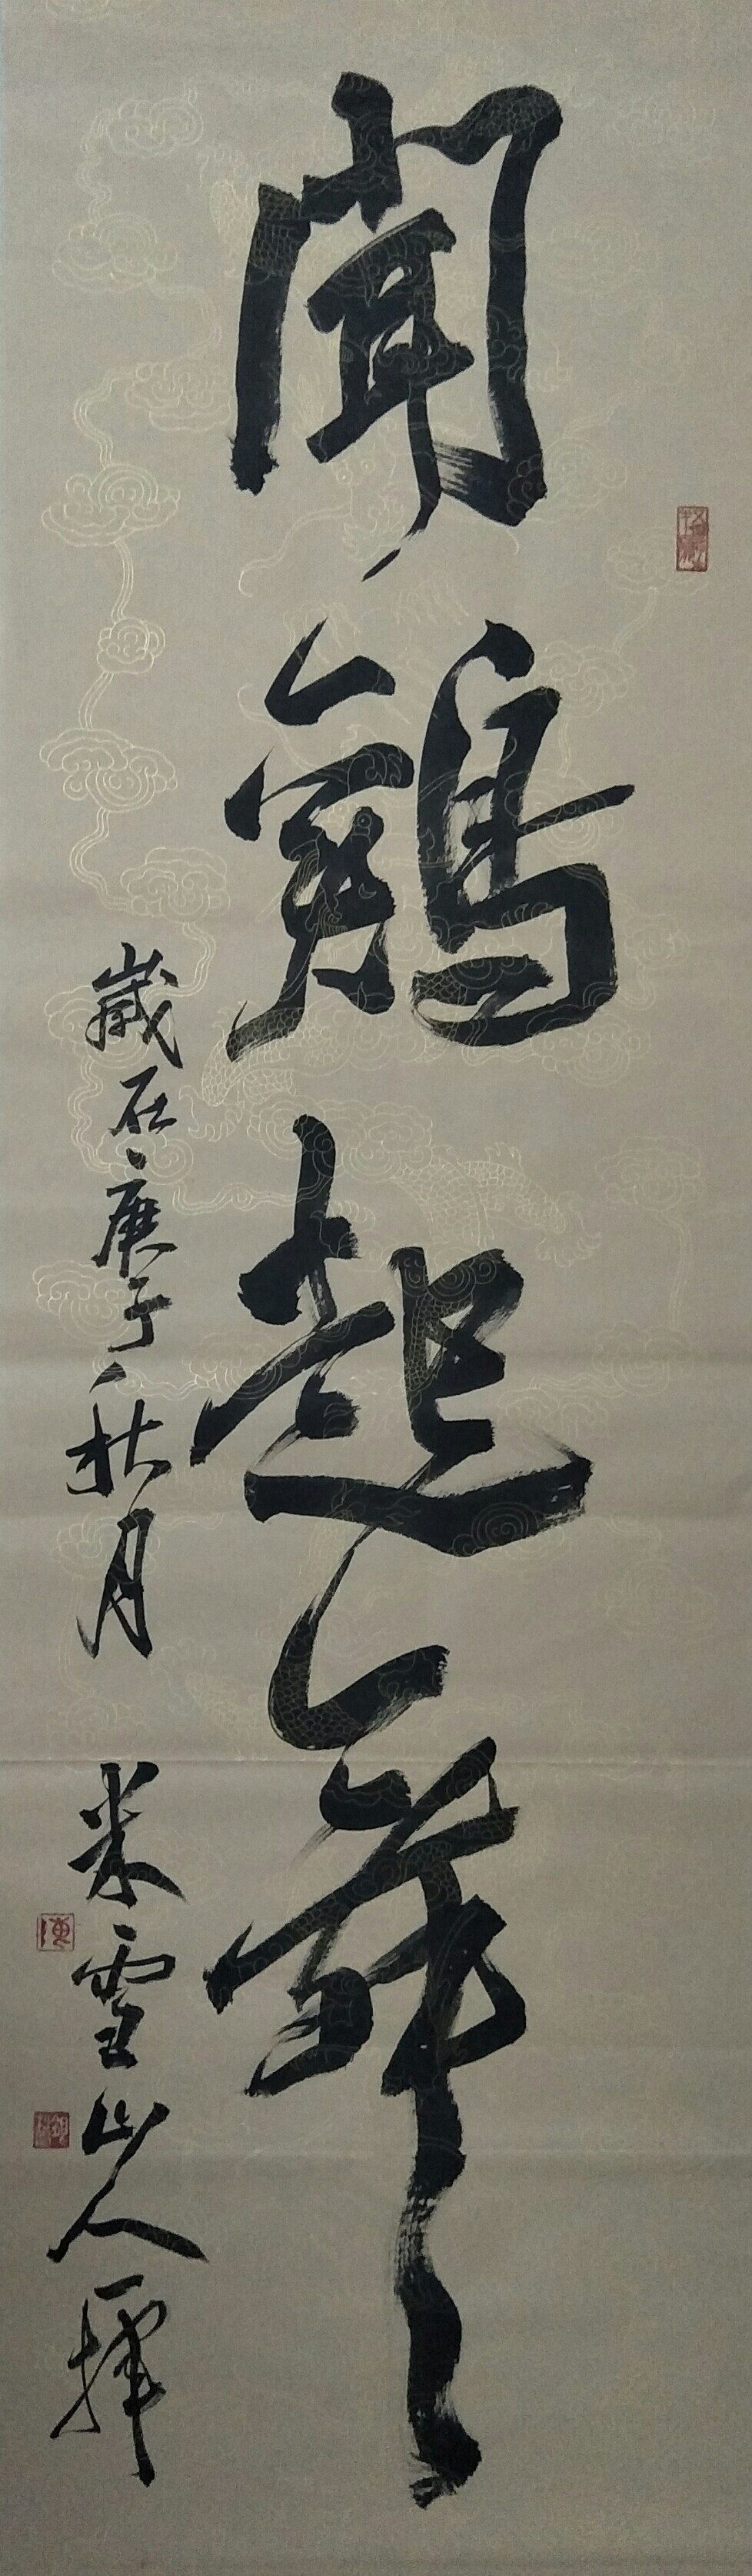 聞鷄起舞
歲在庚子秋月 米雪山人揮